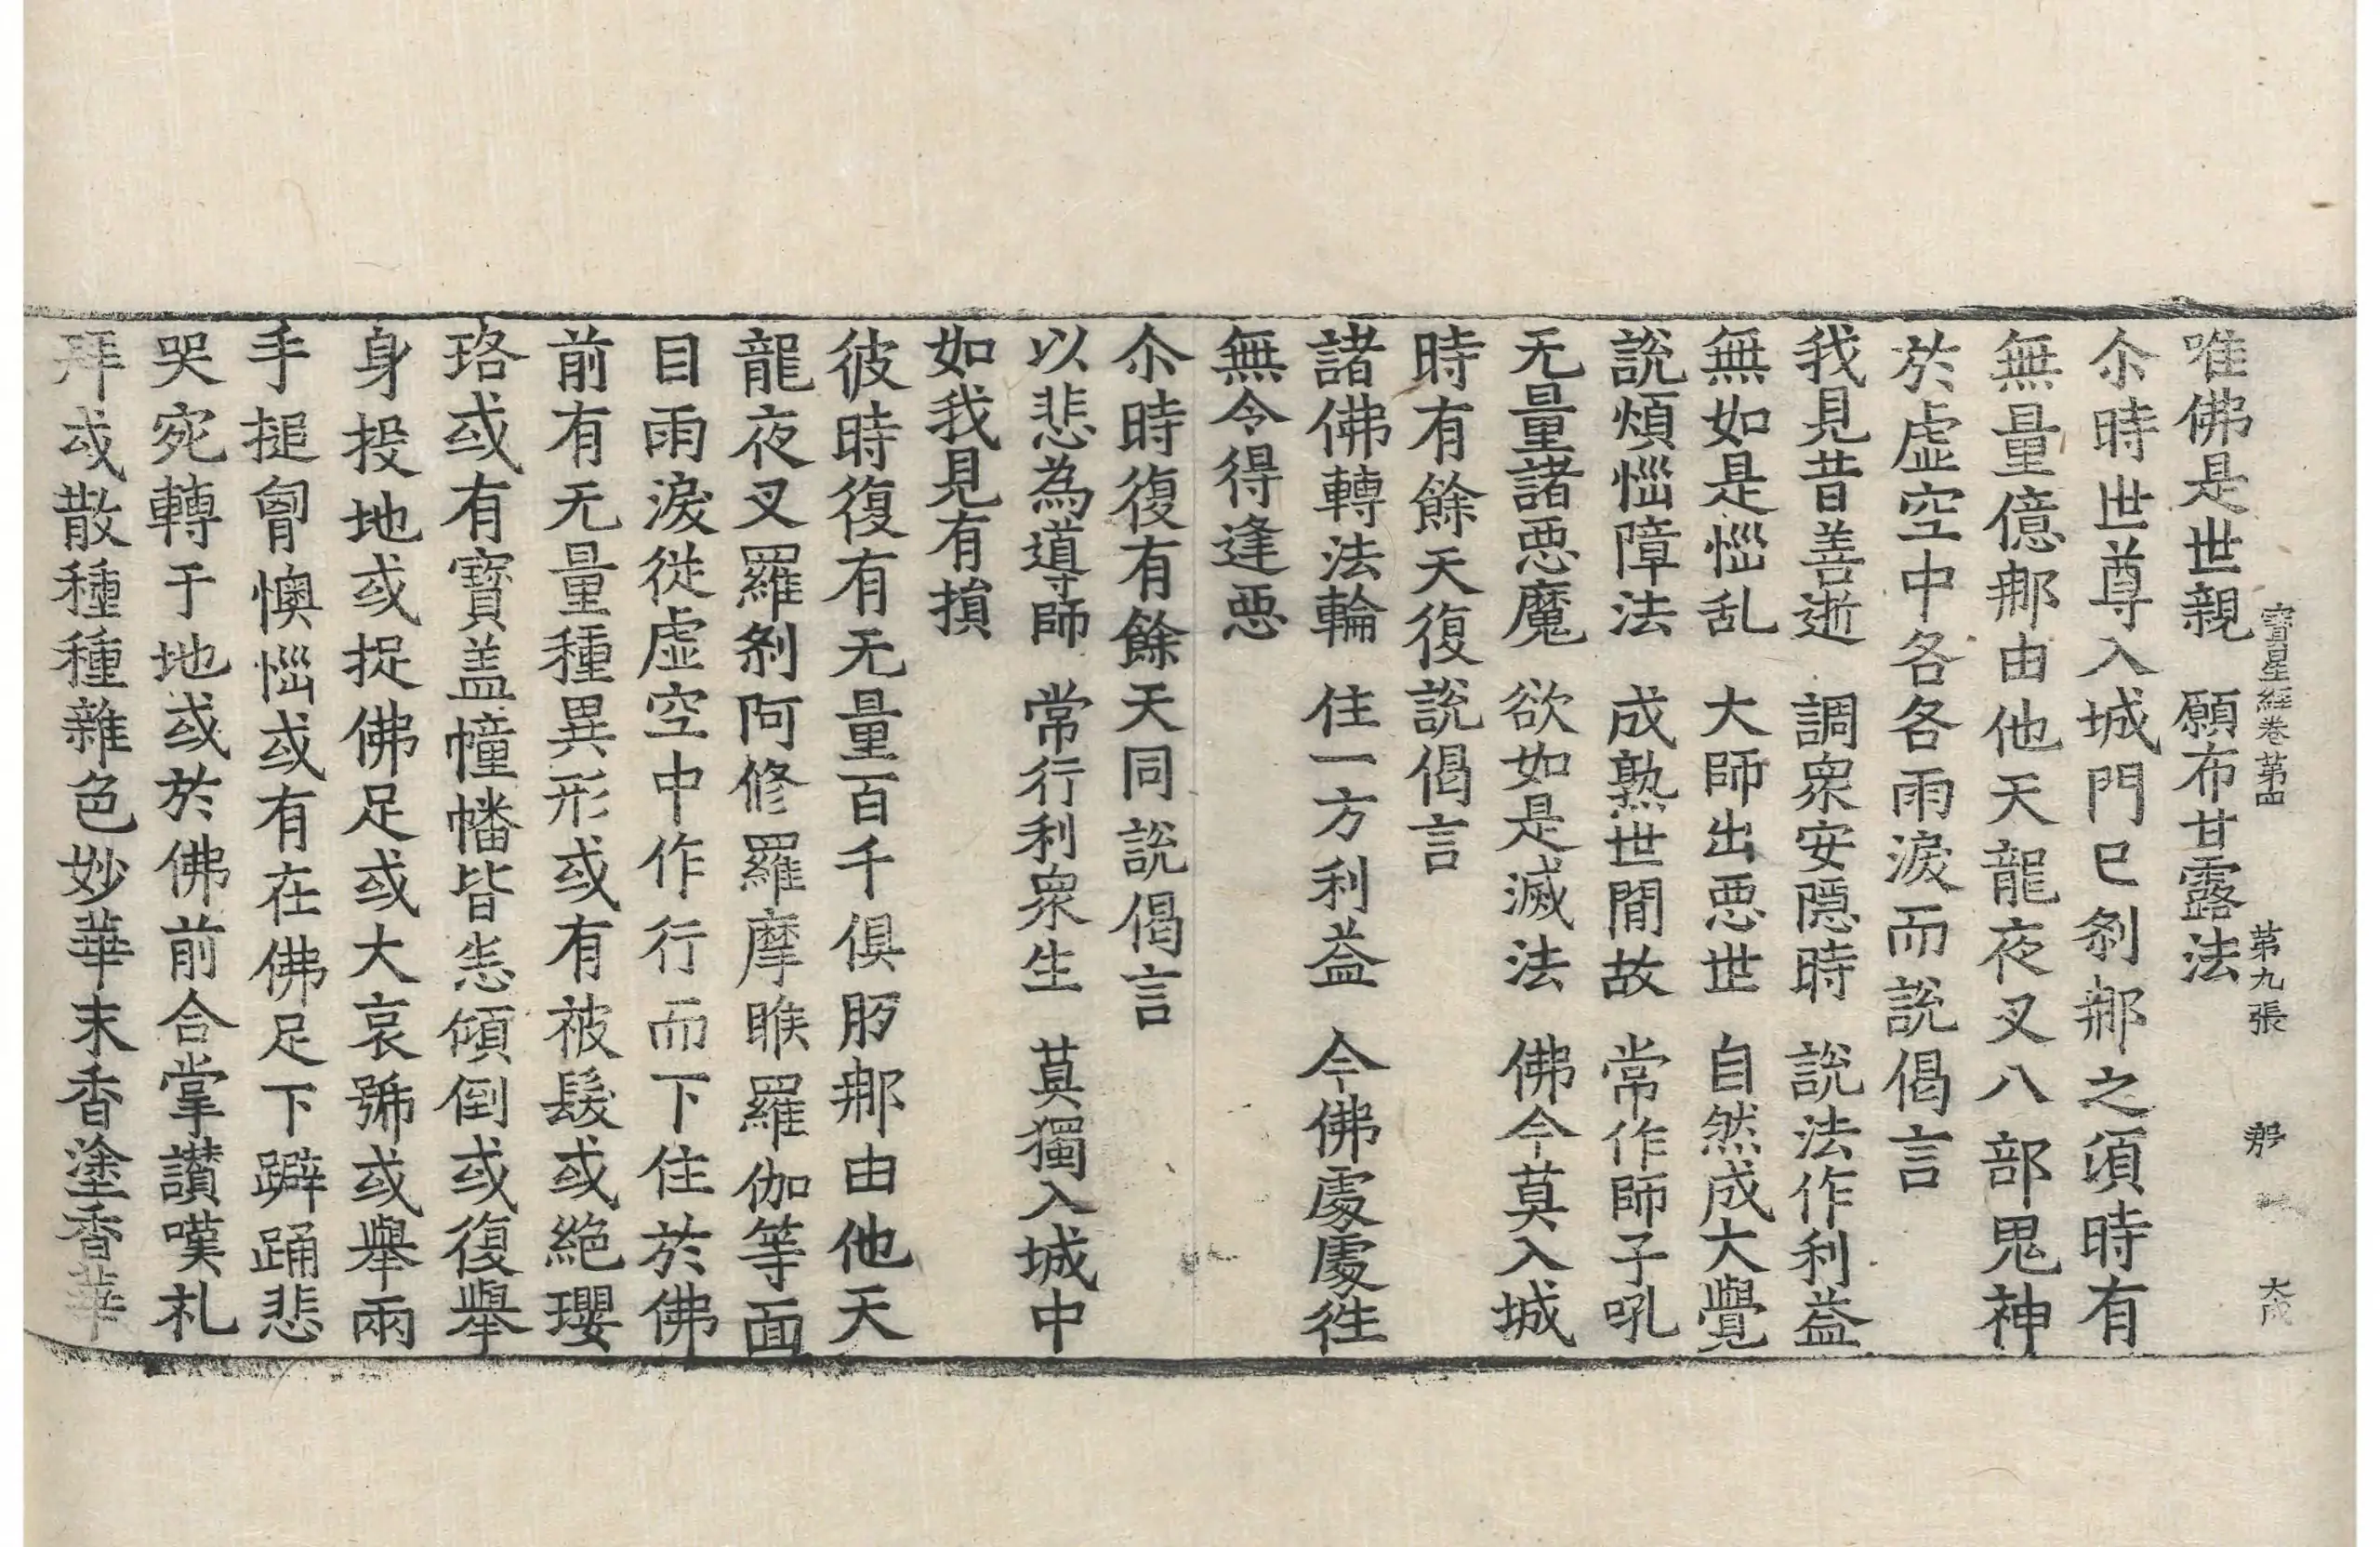 寶星經卷第四 第九張 𨚗 大成
唯佛是世親 願布甘露法
尒時世尊入城門已剎𨚗之湏時有
無量億𨚗由他天龍夜叉八部鬼神
於虛空中各各雨淚而說偈言
我見昔善逝 調衆安隱時 說法作利益
無如是惱乱 大師出惡世 自然成大覺
說煩惱障法 成熟世間故 常作師子吼
无量諸惡魔 欲如是滅法 佛今莫入城
時有餘天復說偈言
諸佛轉法輪 住一方利益 今佛處處往
無令得逢惡
尒時復有餘天同說偈言
以悲為導師 常行利衆生 莫獨入城中
如我見有損
彼時復有无量百千俱胝𨚗由他天
龍夜叉羅剎阿修羅摩睺羅伽等面
目雨淚從虛空中作行而下住於佛
前有无量種異形或有被髮或絕瓔
珞或有寶盖幢幡皆悉傾倒或復舉
身投地或捉佛足或大哀號或舉兩
手搥胷懊惱或有在佛足下躃踊悲
哭宛轉于地或於佛前合掌讃嘆礼
拜或散種種雜色妙華末香塗香華